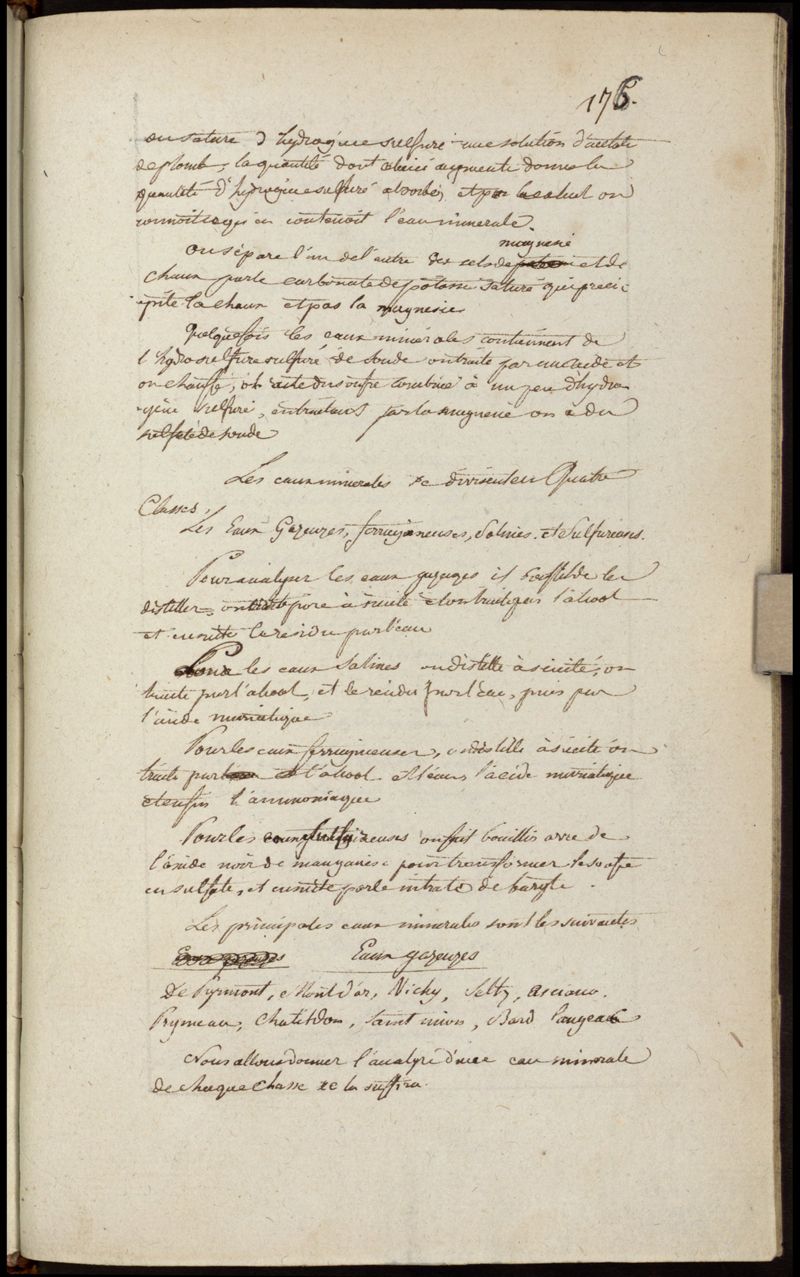 176.
on sature d'hydrogène sulfuré une solution d'acetate
de plomb, la quantité dont celui ci augmente donne la
quantité d'hydrogène sulfuré absorbé, et par le calcul on
connoit ce qu'en contenoit l'eau minerale.
magnesie
on sépare l'un de l'autre des sels de et de
chaux par le carbonate de potasse saturé qui preci-
pite la chaux et pas la magnesie
Quelquefois les eaux minérales contiennent de
l'hydrosulfure sulfuré de soude on traite par un acide et
on chauffe, il reste du soufre combiné à un peu d'hydro-
gène sulfuré, en traitant par la magnesie on a du
sulfate de soude
Les eaux minerales se divisent en Quatre
Classes.
Les Eaux Gazeuzes, ferrugineuses, Salines. et Sulfureuses.
Pour analyser les eaux gazuzes il suffit de les
distiller, on à sicité et on traite par l'alcool
et ensuite le residu par l'eau
Pour les eaux Salines on distille à sicité, on
traite par l'alcool, et le residu par l'eau, puis par
l'acide muriatique
Pour les eaux ferrugineuses, on distille à sicité on
traite par l'alcool et l'eau, l'acide muriatique
et enfin l'ammoniaque
Pour les eaux sulfureuses on fait bouillir avec de
l'oxide noir de manganèse pour transformer le soufre
en sulfate, et ensuite par le nitrate de baryte.
Les principales eaux minerales sont les suivantes
Eaux gazeuzes
De Pyrmont, Mont d'or, Vichy, Seltz, asciano.
Prymeau, Chateldon, Saint mion, Bard Langeac
Nous allons donner l'analyse d'une eau minerale
de chaque Classe se la suffira.